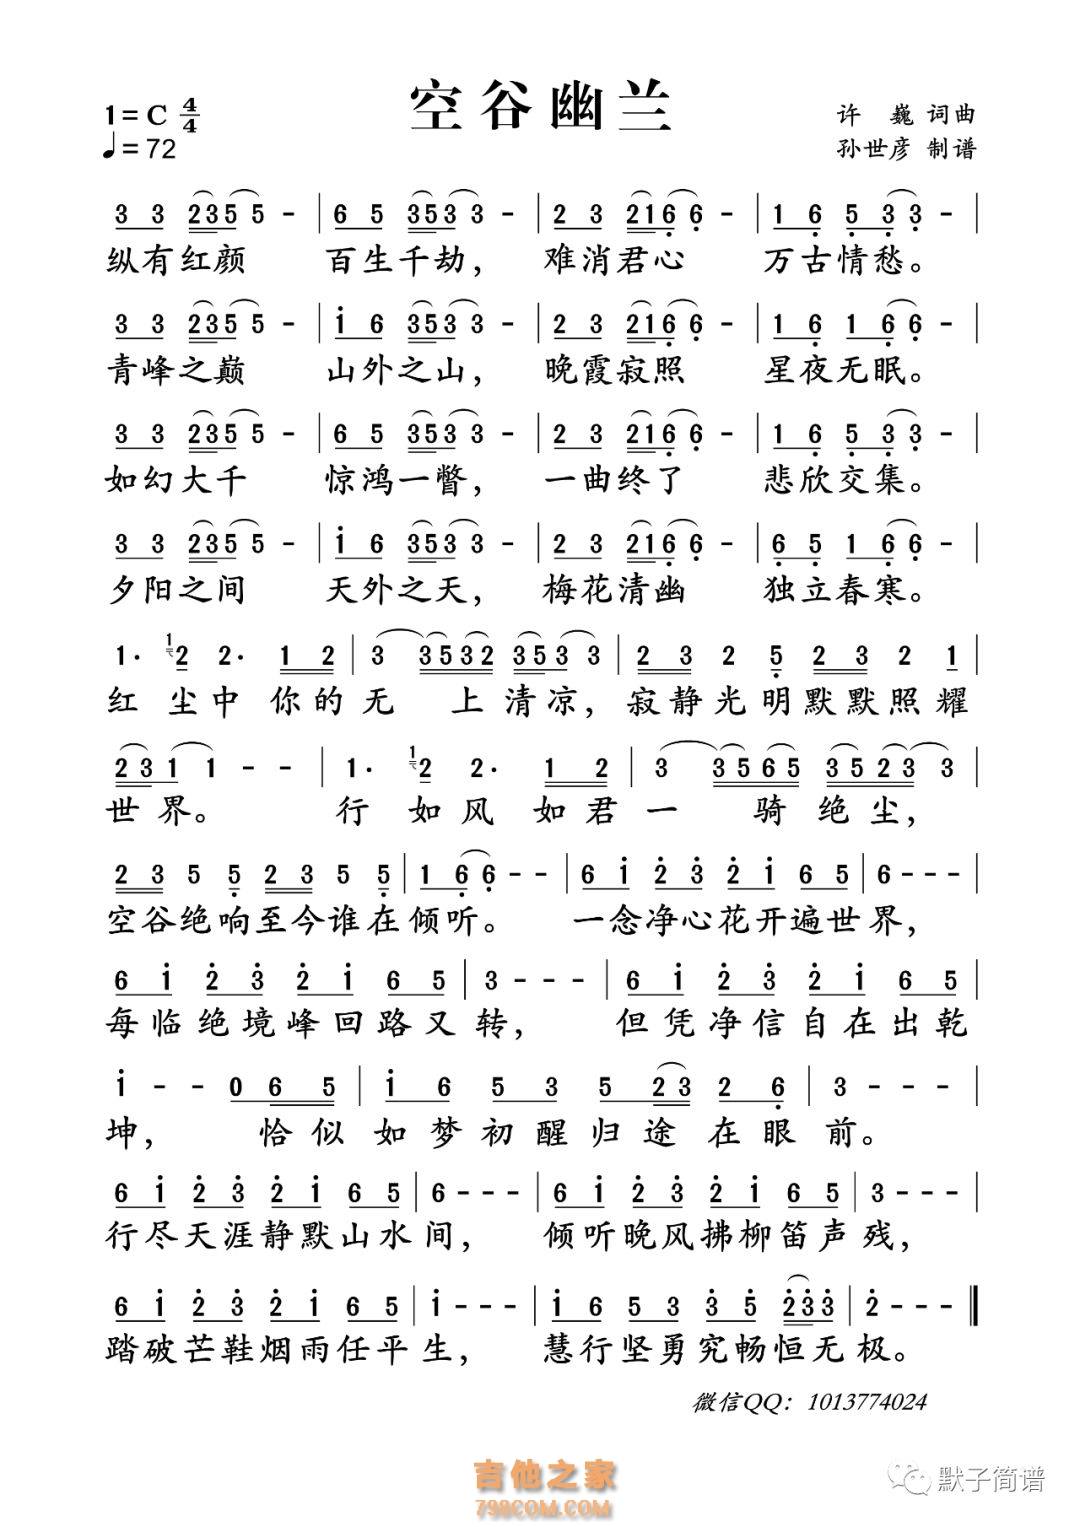 空谷幽兰
1=C 4/4
♩=72
许 巍 词曲
孙世彦 制谱
3 3 2 3 5 5 - | 6 5 3 5 3 3 - | 2 3 2 1 6 6 - | 1 6 5 3 3 - |
纵有红颜 百生千劫， 难消君心 万古情愁。
3 3 2 3 5 5 - | i 6 3 5 3 3 - | 2 3 2 1 6 6 - | 1 6 1 6 6 - |
青峰之巅 山外之山， 晚霞寂照 星夜无眠。
3 3 2 3 5 5 - | 6 5 3 5 3 3 - | 2 3 2 1 6 6 - | 1 6 5 3 3 - |
如幻大千 惊鸿一瞥， 一曲终了 悲欣交集。
3 3 2 3 5 5 - | i 6 3 5 3 3 - | 2 3 2 1 6 6 - | 6 5 1 6 6 - |
夕阳之间 天外之天， 梅花清幽 独立春寒。
1· 1 2 2· 1 2 | 3 3 5 3 2 3 5 3 3 | 2 3 2 5 2 3 2 1 |
红尘中你的无上清凉，寂静光明默默照耀
2 3 1 1 - - | 1· 1 2 2· 1 2 | 3 3 5 6 5 3 5 2 3 3 |
世界。 行如风如君一骑绝尘，
2 3 5 5 2 3 5 5 | 1 6 6 - - | 6 i 2 3 2 i 6 5 | 6 - - - |
空谷绝响至今谁在倾听。 一念净心花开遍世界，
6 i 2 3 2 i 6 5 | 3 - - - | 6 i 2 3 2 i 6 5 |
每临绝境峰回路又转， 但凭净信自在出乾
i - - 0 6 5 | i 6 5 3 5 2 3 2 6 | 3 - - - |
坤， 恰似如梦初醒归途在眼前。
6 i 2 3 2 i 6 5 | 6 - - - | 6 i 2 3 2 i 6 5 | 3 - - - |
行尽天涯静默山水间， 倾听晚风拂柳笛声残，
6 i 2 3 2 i 6 5 | i - - - | i 6 5 3 3 5 2 3 3 | 2 - - - ‖
踏破芒鞋烟雨任平生， 慧行坚勇究畅恒无极。
微信QQ：1013774024
吉他之家
798COM.COM
默子简谱